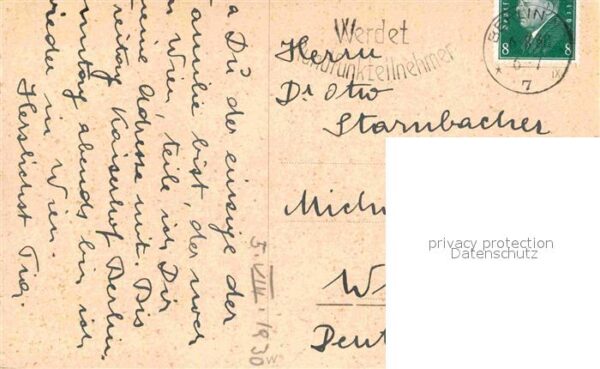 Da Du der einzige der
Familie bist, der noch
in Wien, teile ich Dir
meine Adresse mit. Bis
Freitag Kaiserhof Berlin,
Samstag abends bin ich
wieder in Wien.
Herzlichst
5. VIII. 1930
Werdet
Rundfunkteilnehmer
BERLIN
7
8 8
Herrn
Dr Otto
Starnbacher
privacy protection
Datenschutz